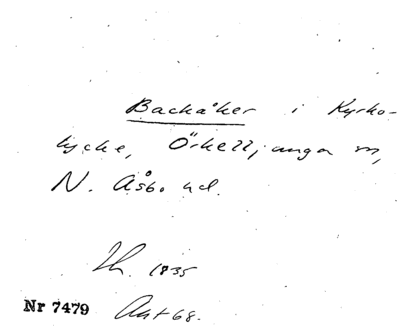 Backåker i Kyrko-
lycke, Örkelljunga sn,
N. Åsbo hd.
Lh. 1835
Nr 7479 Akt 68.